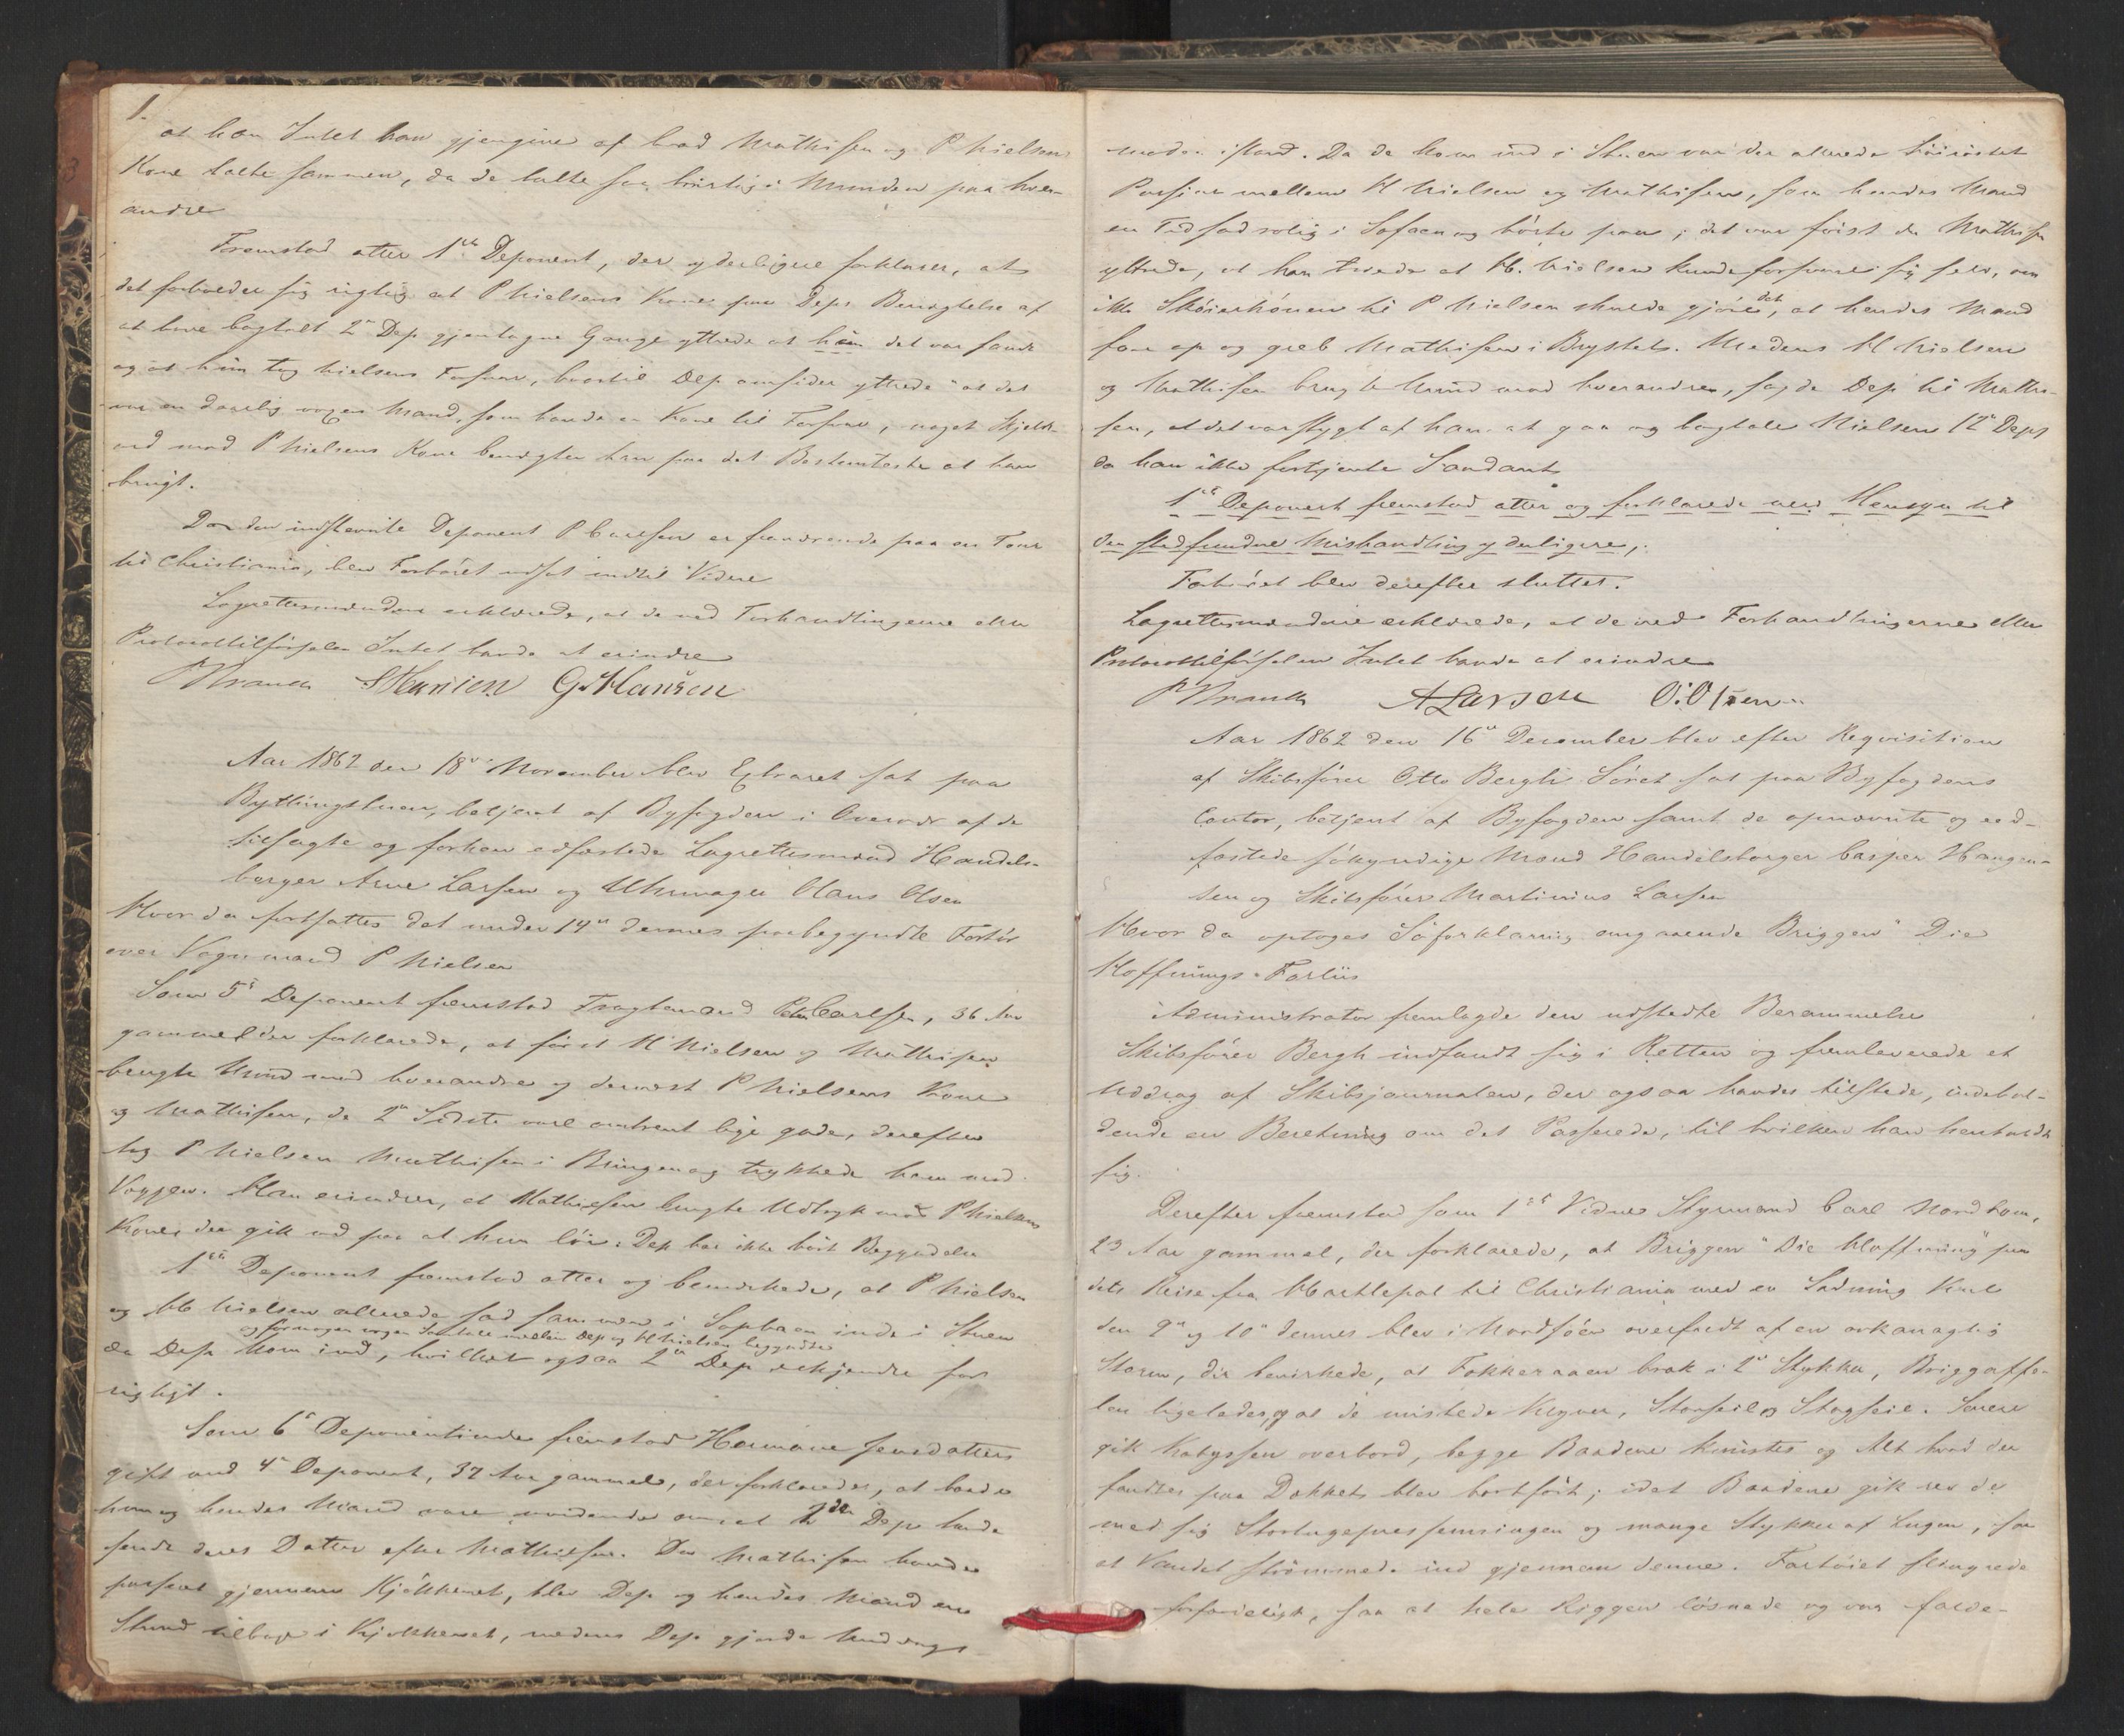 1.
at han Intet kan gjengive af hvad Mathisen og P Nielsens
Kone talte sammen, da de talte saa hurtig i Munden paa hver-
andre
Fremstod atter 1ste Deponent, der yderligere forklarer, at
det forholder sig rigtig at P Nielsens Kone paa Deps Benegtelse af
at have bagtalt 2den Dep gjentagne Gange yttrede at han det var sandt
og at hun tog Nielsens Forsvar, hvortil Dep omsider yttrede "at det
var en daarlig voxen Mand, som havde en Kone til Forsvar, noget Skjelds-
ord mod P Nielsens Kone benegter han paa det Bestemteste at have
brugt.
Da den indstevnte Deponent P Carlsen er fraværende paa en Tour
til Christiania, blev Forhöret udsat indtil Videre
Lagrettesmændene erklærede, at de ved Forhandlingerne eller
Protocoltilförselen Intet havde at erindre
Hansen G Hansen
Aar 1862 den 18de November blev Extraret sat paa
Bythingstuen, betjent af Byfogden i Overvær af de
tilsagte og forhen edfæstede Lagrettesmænd Handels-
borger Arne Larsen og Uhrmager Olaus Olsen
Hvor da fortsattes det under 14de dennes paabegyndte Forhör
over Vognmand P Nielsen
Som 5te Deponent fremstod Fragtemand Peter Carlsen, 36 Aar
gammel der forklarede, at först H Nielsen og Mathisen
brugte Mund mod hverandre og dernæst P Nielsens Kone
og Mathisen, de 2de Sidste vare omtrent lige gode, derefter
tog P Nielsen Mathisen i Bringen og trykkede ham mod
Væggen. Han erindrer, at Mathisen brugte Udtryk mod P Nielsens
Kone, der gik ud paa at hun löi. Dep har ikke hört Begyndelsen
1ste Deponent fremstod atter og bemærkede, at P Nielsen
og H Nielsen allerede sad sammen i Sophaen inde i Stuen
og förend nogen Samtale mellem Dep og H Nielsen begyndte
da Dep kom ind, hvilket ogsaa 2den Dep erkjendte for
rigtigt.
Som 6te Deponentinde fremstod Hermane Jensdatter
gift med 4de Deponent, 37 Aar gammel, der forklarede, at baade
hun og hendes Mand vare uvidende om at 2den Dep havde
sendt deres Datter efter Mathisen. Da Mathisen havde
passeret gjennem Kjökkenet, blev Dep og hendes Mand en
Stund tilbage i Kjökkenet, medens Dep gjorde
maden istand. Da de kom ind i Stuen var der allerede höiröstet
Passiar mellem H Nielsen og Mathisen, som hendes Mand
en Tid sad rolig i Sofaen og hörte paa; det var först da Mathisen
yttrede, at han troede at H. Nielsen kunde forsvare sig selv, om
ikke Sköierkonen til P Nielsen skulde gjöre det, at hendes Mand
foer op og greb Mathisen i Brystet. Medens H Nielsen
og Mathisen brugte Mund mod hverandre, sagde Dep til Mathi-
sen, at det var stygt af ham at gaa og bagtale Nielsen 12te Deps
da han ikke fortjente Saadant
1ste Deponent fremstod atter og forklarede med Hensyn til
den stedfundne Mishandling yderligere,
Forhöret blev derefter sluttet.
Lagrettesmændene erklærede, at de ved Forhandlingerne eller
Protocoltilförselen Intet havde at erindre
A Larsen O. Olsen
Aar 1862 den 16de December blev efter Reqvisition
af Skibsförer Otto Bergh Söret sat paa Byfogdens
Contor, betjent af Byfogden samt de opnævnte og eed-
fæstede sökyndige Mænd Handelsborger Casper Haagen-
sen og Skibsförer Martinius Larsen
Hvor da optoges Söforklaring angaaende Briggen "Die
Hoffnungs" Forliis
Administrator fremlagde den udstedte Berammelse
Skibsförer Bergh indfandt sig i Retten og fremleverede et
Uddrag af Skibsjournalen, der ogsaa havdes tilstede, indehol-
dende en Beretning om det Passerede, til hvilken han henholdt
sig.
Derefter fremstod som 1ste Vidne Styrmand Carl Nordbom,
23 Aar gammel, der forklarede, at Briggen "Die Hoffnung" paa
dets Reise fra Hartlepol til Christiania med en Ladning Kul
den 9de og 10de dennes blev i Nordsöen overfaldt af en orkanagtig
Storm, der bevirkede, at Fokkeraaen brak i 2de Stykker, Briggaffe-
len ligeledes, og at de mistede Klyver, Storseil og Stagseil. Senere
gik Kabyssen overbord, begge Baadene knustes og Alt hvad der
fandtes paa Dækket blev bortfört; idet Baadene gik rev de
med sig Storlugepresenningen og mange Stykker af Lugen, saa
at Vandet strömmede ind gjennem denne. Fartöiet slingrede
forfærdeligt, saa at hele Riggen lösnede og var færde-